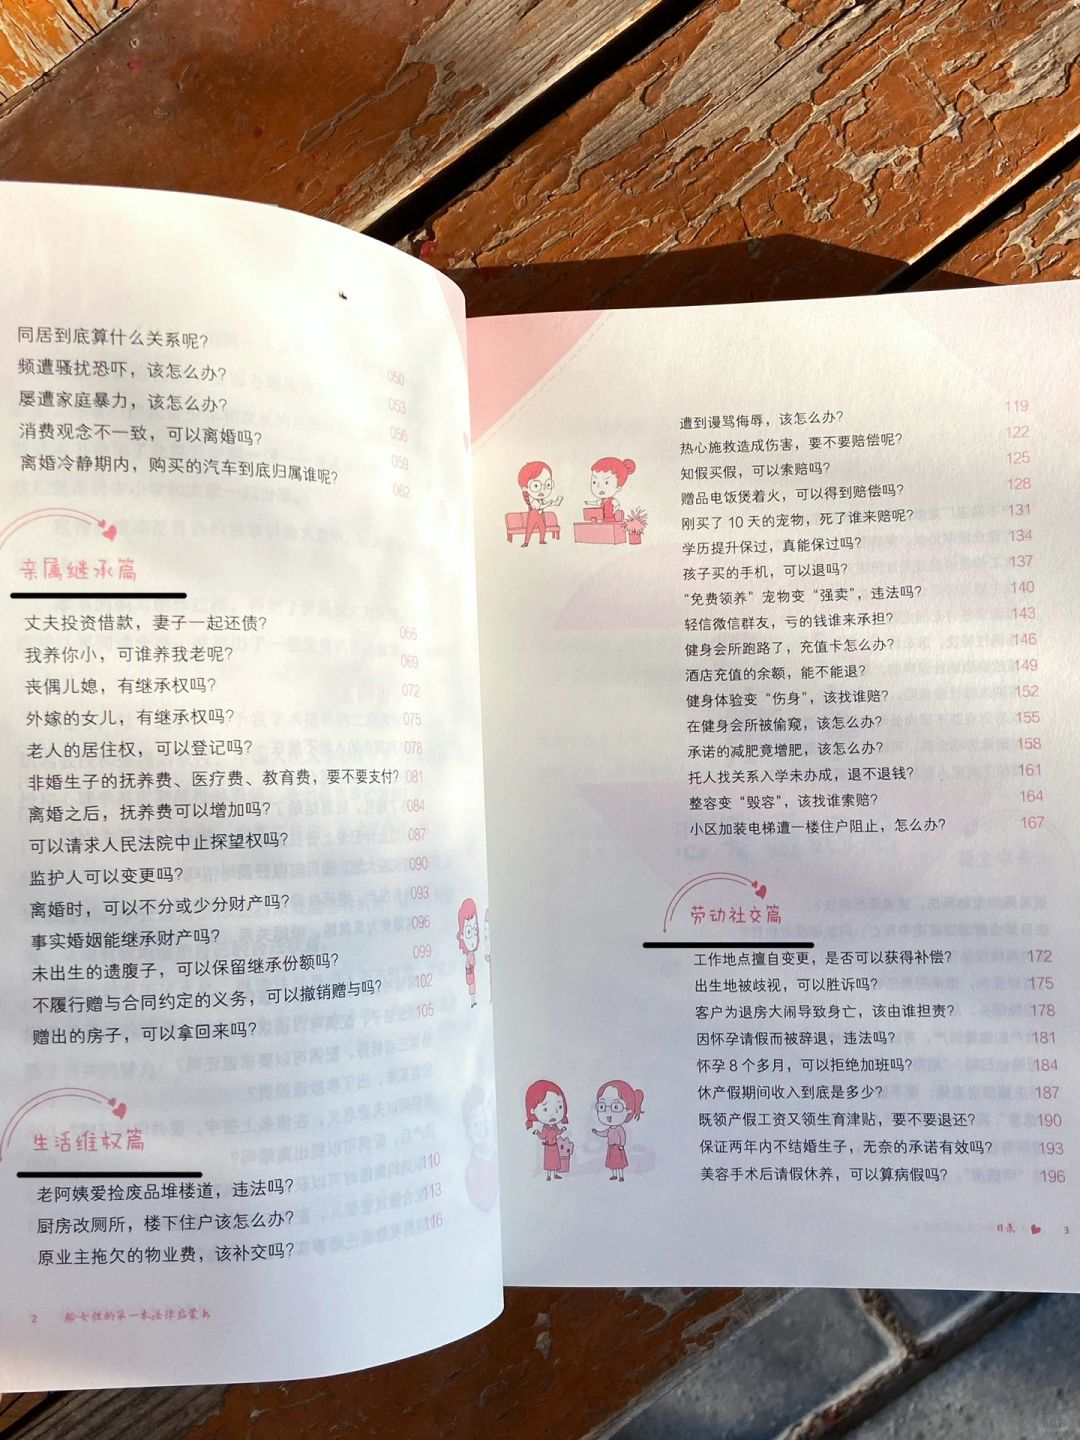 同居到底算什么关系呢? 050
频遭骚扰恐吓，该怎么办? 053
屡遭家庭暴力，该怎么办? 056
消费观念不一致，可以离婚吗? 059
离婚冷静期内，购买的汽车到底归属谁呢? 062
亲属继承篇
丈夫投资借款，妻子一起还债? 066
我养你小，可谁养我老呢? 069
丧偶儿媳，有继承权吗? 072
外嫁的女儿，有继承权吗? 075
老人的居住权，可以登记吗? 078
非婚生子的抚养费、医疗费、教育费，要不要支付? 081
离婚之后，抚养费可以增加吗? 084
可以请求人民法院中止探望权吗? 087
监护人可以变更吗? 090
离婚时，可以不分或少分财产吗? 093
事实婚姻能继承财产吗? 096
未出生的遗腹子，可以保留继承份额吗? 099
不履行赠与合同约定的义务，可以撤销赠与吗? 102
赠出的房子，可以拿回来吗? 105
生活维权篇
老阿姨爱捡废品堆楼道，违法吗? 110
厨房改厕所，楼下住户该怎么办? 113
原业主拖欠的物业费，该补交吗? 116
2 给女性的第一本法律启蒙书
遭到谩骂侮辱，该怎么办? 119
热心施救造成伤害，要不要赔偿呢? 122
知假买假，可以索赔吗? 125
赠品电饭煲着火，可以得到赔偿吗? 128
刚买了 10 天的宠物，死了谁来赔呢? 131
学历提升保过，真能保过吗? 134
孩子买的手机，可以退吗? 137
“免费领养”宠物变“强卖”，违法吗? 140
轻信微信群友，亏的钱谁来承担? 143
健身会所跑路了，充值卡怎么办? 146
酒店充值的余额，能不能退? 149
健身体验变“伤身”，该找谁赔? 152
在健身会所被偷窥，该怎么办? 155
承诺的减肥竟增肥，该怎么办? 158
托人找关系入学未办成，退不退钱? 161
整容变“毁容”，该找谁索赔? 164
小区加装电梯遭一楼住户阻止，怎么办? 167
劳动社交篇
工作地点擅自变更，是否可以获得补偿? 172
出生地被歧视，可以胜诉吗? 175
客户为退房大闹导致身亡，该由谁担责? 178
因怀孕请假而被辞退，违法吗? 181
怀孕 8 个多月，可以拒绝加班吗? 184
休产假期间收入到底是多少? 187
既领产假工资又领生育津贴，要不要退还? 190
保证两年内不结婚生子，无奈的承诺有效吗? 193
美容手术后请假休养，可以算病假吗? 196
目录 3